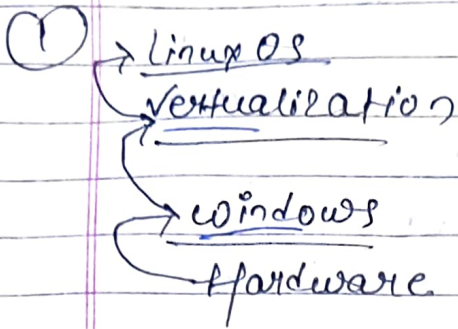 ①
Linux OS
Vertualization
windows
Hardware